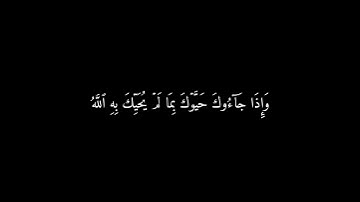 وَإِذَا جَآءُوكَ حَيَّوۡكَ بِمَا لَمۡ يُحَيِّكَ بِهِ ٱللَّهُ